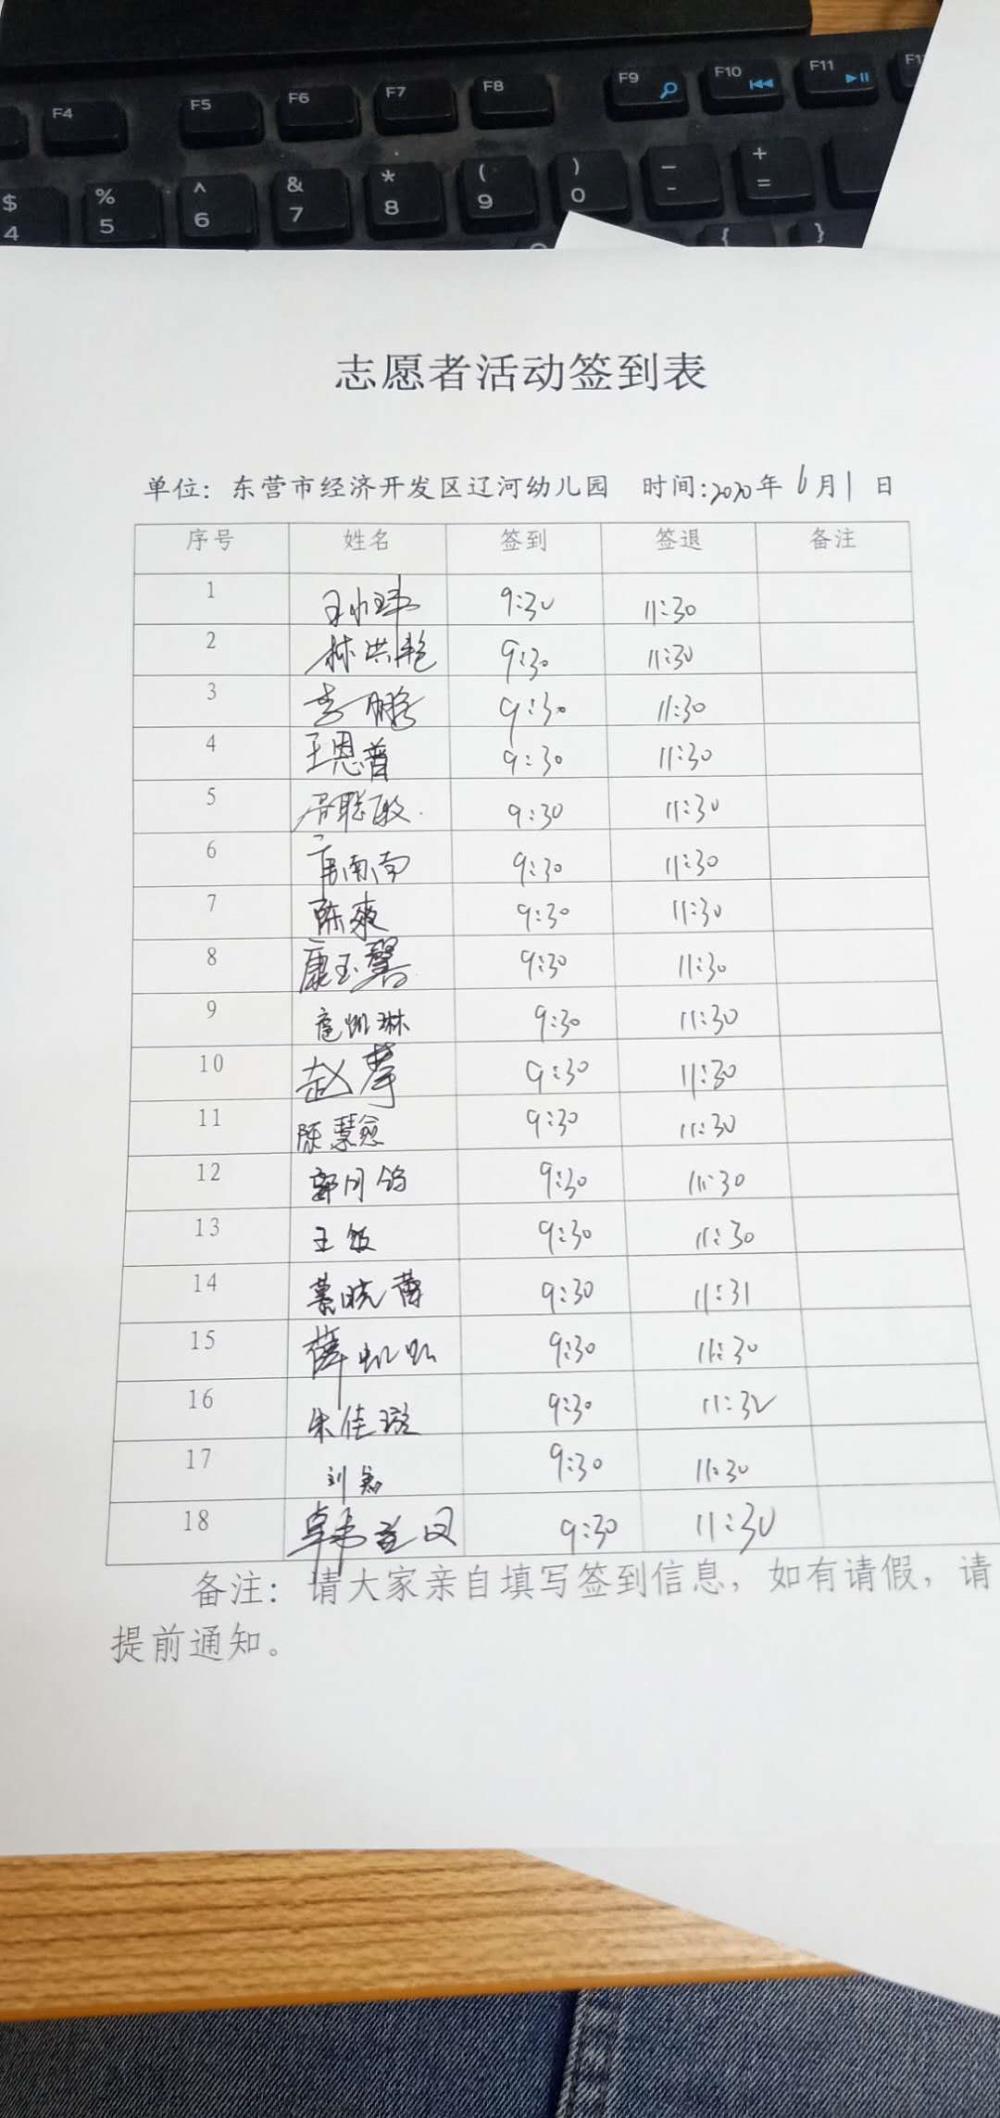 F4 F5 F6 F7 F8 F9 F10 F11 F1
$ % ^ & * ( ) - + {  }
4 5 6 7 8 9 0 - =
志愿者活动签到表
单位：东营市经济开发区辽河幼儿园 时间:2020年6月1日
序号 姓名 签到 签退 备注
1 9:30 11:30
2 林洪艳 9:30 11:30
3 李鹏 9:30 11:30
4 王恩普 9:30 11:30
5 聪敏 9:30 11:30
6 南南 9:30 11:30
7 陈爽 9:30 11:30
8 康玉馨 9:30 11:30
9 琳 9:30 11:30
10 赵 9:30 11:30
11 陈慧 9:30 11:30
12 郭月 9:30 11:30
13 王 9:30 11:30
14 晓蕾 9:30 11:31
15 薛 9:30 11:30
16 朱佳璇 9:30 11:32
17 刘 9:30 11:30
18 9:30 11:30
备注：请大家亲自填写签到信息，如有请假，请
提前通知。